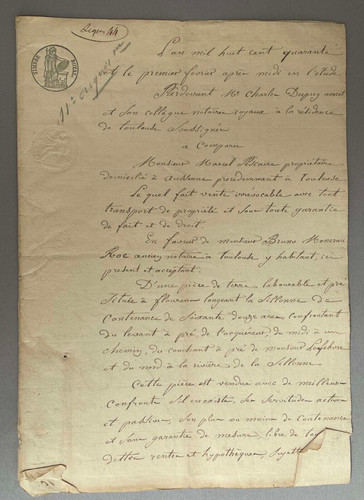 44
TIMBRE ROYAL
L'an mil huit cent quarante
le premier février après midi en l'étude
Pardevant Me Charles Dupuy avocat
et Son collègue notaires royaux à la résidence
de toulouse Soussignés
a Comparu
Monsieur Marcel propriétaire
domicilié à précédemment à Toulouse
Le quel fait vente irrévocable avec tout
transport de propriété et Sous toute garantie
de fait et de droit
En faveur de monsieur Bruno
Roc ancien notaire à toulouse y habitant, ici
présent et acceptant.
D'une pièce de terre labourable et pré
Située à flourens longeant la Seillonne De
Contenance de Soixante douze ares Confrontant
du levant à pré de l'acquéreur, du midi à un
chemin, du couchant à pré de monsieur Lefebvre
et du nord à la rivière de la Seillonne
Cette pièce est vendue avec de meilleurs
Confronts S'il en existe, Ses Servitudes actives
et passives, Son plus ou moins de Contenance
et Sans garantie de mesure, libre de
dettes rentes et hypothèques, Sujette